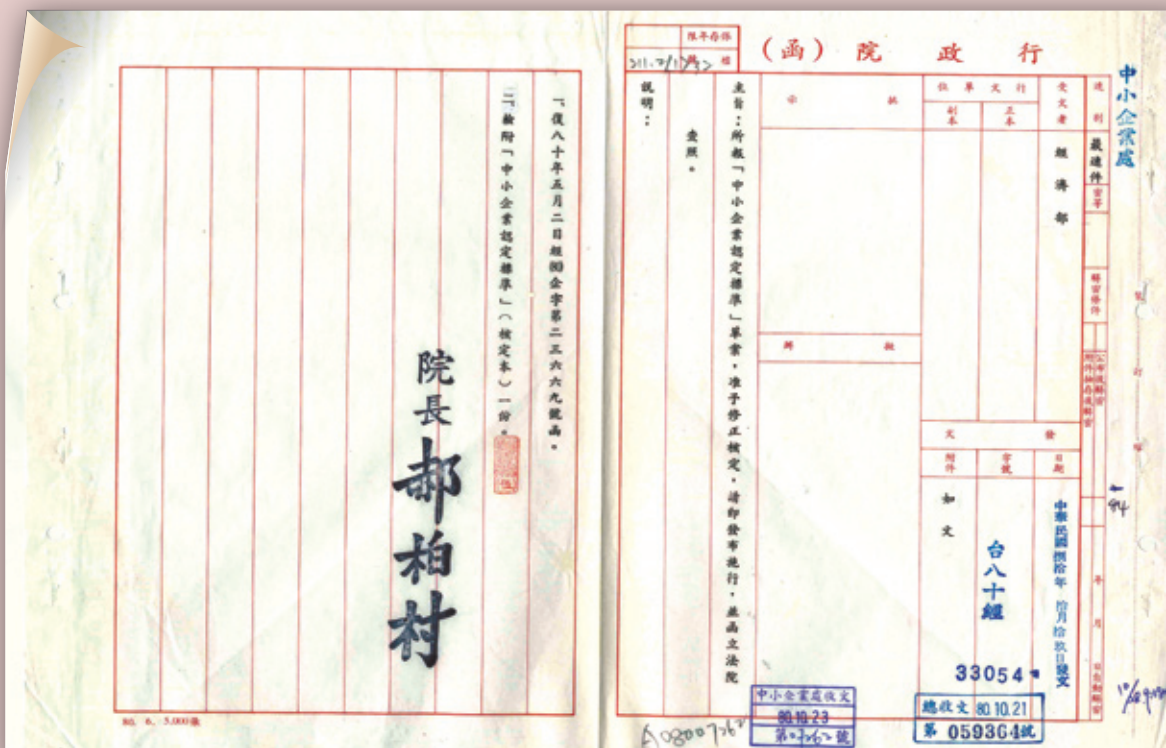 行政院(函)
保存年限
檔號
中小企業處
速別
最速件
密等
解密條件
公布後解密
附件抽存後解密
年月日自動解密
受文者
經濟部
行文單位
正本
副本
批示
擬辦
發文
日期
中華民國捌拾年拾月拾玖日發文
字號
台八十經
33054
附件
如文
主旨:所報「中小企業認定標準」草案,准予修正核定,請即發布施行,並函立法院
查照。
說明:
一、復八十年五月二日經(80)企字第二三六六九號函。
二、檢附「中小企業認定標準」(核定本)一份。
院長郝柏村
裝訂線
中小企業處收文
80.10.23
總收文 80.10.21
第 059364號
A08007262
80. 6. 5,000張